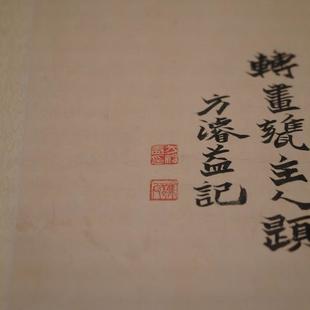 轉畫甕主人題
方濬益記